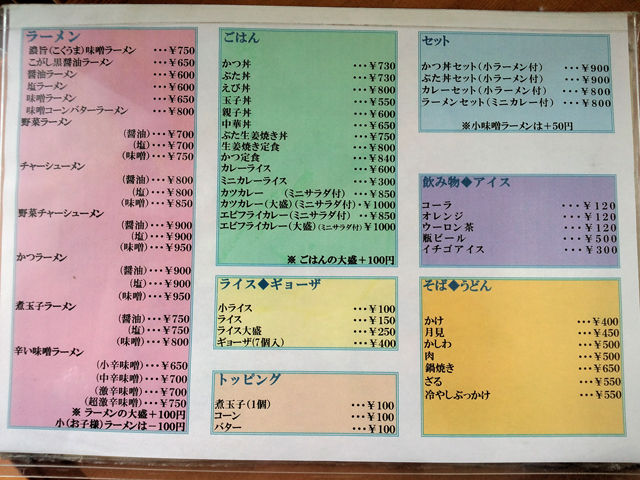 ラーメン
濃旨(こくうま)味噌ラーメン ･･･¥750
こがし黒醤油ラーメン ･･･¥650
醤油ラーメン ･･･¥600
塩ラーメン ･･･¥600
味噌ラーメン ･･･¥650
味噌コーンバターラーメン ･･･¥800
野菜ラーメン
(醤油)･･･¥700
(塩)･･･¥700
(味噌)･･･¥750
チャーシューメン
(醤油)･･･¥800
(塩)･･･¥800
(味噌)･･･¥850
野菜チャーシューメン
(醤油)･･･¥900
(塩)･･･¥900
(味噌)･･･¥950
かつラーメン
(醤油)･･･¥900
(塩)･･･¥900
(味噌)･･･¥950
煮玉子ラーメン
(醤油)･･･¥750
(塩)･･･¥750
(味噌)･･･¥800
辛い味噌ラーメン
(小辛味噌)･･･¥650
(中辛味噌)･･･¥700
(激辛味噌)･･･¥700
(超激辛味噌)･･･¥750
※ラーメンの大盛+100円
小(お子様)ラーメンは-100円
ごはん
かつ丼 ･･･¥730
ぶた丼 ･･･¥730
えび丼 ･･･¥800
玉子丼 ･･･¥550
親子丼 ･･･¥600
中華丼 ･･･¥650
ぶた生姜焼き丼 ･･･¥750
生姜焼き定食 ･･･¥800
かつ定食 ･･･¥840
カレーライス ･･･¥600
ミニカレーライス ･･･¥300
カツカレー (ミニサラダ付)･･･¥850
カツカレー(大盛)(ミニサラダ付)･･･¥1000
エビフライカレー(ミニサラダ付)･･･¥850
エビフライカレー(大盛)(ミニサラダ付)･･･¥1000
※ごはんの大盛+100円
ライス◆ギョーザ
小ライス ･･･¥100
ライス ･･･¥150
ライス大盛 ･･･¥250
ギョーザ(7個入) ･･･¥400
トッピング
煮玉子(1個) ･･･¥100
コーン ･･･¥100
バター ･･･¥100
セット
かつ丼セット(小ラーメン付) ･･･¥900
ぶた丼セット(小ラーメン付) ･･･¥900
カレーセット(小ラーメン付) ･･･¥800
ラーメンセット(ミニカレー付) ･･･¥800
※小味噌ラーメンは+50円
飲み物◆アイス
コーラ ･･･¥120
オレンジ ･･･¥120
ウーロン茶 ･･･¥120
瓶ビール ･･･¥500
イチゴアイス ･･･¥300
そば◆うどん
かけ ･･･¥400
月見 ･･･¥450
かしわ ･･･¥500
肉 ･･･¥500
鍋焼き ･･･¥650
ざる ･･･¥550
冷やしぶっかけ ･･･¥550